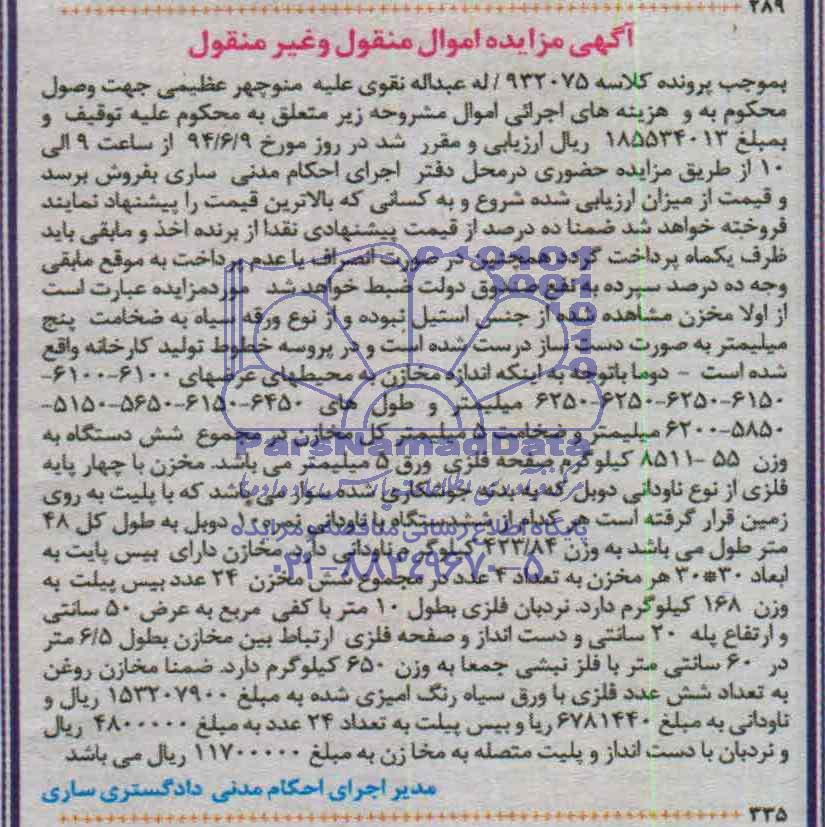 ۲۸۹
آگهی مزایده اموال منقول وغیر منقول
بموجب پرونده کلاسه ۹۳۲۰۷۵ / له عبداله نقوی علیه منوچهر عظیمی جهت وصول
محکوم به و هزینه های اجرائی اموال مشروحه زیر متعلق به محکوم علیه توقیف و
بمبلغ ۱۸۵۵۳۴۰۱۳ ریال ارزیابی و مقرر شد در روز مورخ ۹۴/۶/۹ از ساعت ۹ الی
۱۰ از طریق مزایده حضوری درمحل دفتر اجرای احکام مدنی ساری بفروش برسد
و قیمت از میزان ارزیابی شده شروع و به کسانی که بالاترین قیمت را پیشنهاد نمایند
فروخته خواهد شد ضمنا ده درصد از قیمت پیشنهادی نقدا از برنده اخذ و مابقی باید
ظرف یکماه پرداخت گردد همچنین در صورت انصراف یا عدم پرداخت به موقع مابقی
وجه ده درصد سپرده به نفع صندوق دولت ضبط خواهد شد موردمزایده عبارت است
از اولا مخزن مشاهده شده از جنس استیل نبوده و از نوع ورقه سیاه به ضخامت پنج
میلیمتر به صورت دست ساز درست شده است و در پروسه خطوط تولید کارخانه واقع
شده است - دوما باتوجه به اینکه اندازه مخازن به محیطهای عرضهای ۶۱۰۰-۶۱۰۰-
۶۱۵۰-۶۲۵۰-۶۲۵۰-۶۲۵۰ میلیمتر و طول های ۶۴۵۰-۶۱۵۰-۵۶۵۰-۵۱۵۰-
۵۸۵۰-۶۲۰۰ میلیمتر و ضخامت ۵ میلیمتر کل مخازن در مجموع شش دستگاه به
وزن ۵۵ -۸۵۱۱ کیلوگرم صفحه فلزی ورق ۵ میلیمتر می باشد. مخزن با چهار پایه
فلزی از نوع ناودانی دوبل که به بدنه جوشکاری شده سوار می باشد که با پلیت به روی
زمین قرار گرفته است هر کدام از شش دستگاه با ناودانی نمره ۱۰ دوبل به طول کل ۴۸
متر طول می باشد به وزن ۴۲۳/۸۴ کیلوگرم ناودانی دارد. مخازن دارای بیس پایت به
ابعاد ۳۰*۳۰ هر مخزن به تعداد ۴ عدد در مجموع شش مخزن ۲۴ عدد بیس پیلت به
وزن ۱۶۸ کیلوگرم دارد. نردبان فلزی بطول ۱۰ متر با کفی مربع به عرض ۵۰ سانتی
و ارتفاع پله ۲۰ سانتی و دست انداز و صفحه فلزی ارتباط بین مخازن بطول ۶/۵ متر
در ۶۰ سانتی متر با فلز نبشی جمعا به وزن ۶۵۰ کیلوگرم دارد. ضمنا مخازن روغن
به تعداد شش عدد فلزی با ورق سیاه رنگ امیزی شده به مبلغ ۱۵۳۲۰۷۹۰۰ ریال و
ناودانی به مبلغ ۶۷۸۱۴۴۰ ریا و بیس پیلت به تعداد ۲۴ عدد به مبلغ ۴۸۰۰۰۰۰ ریال
و نردبان با دست انداز و پلیت متصله به مخا زن به مبلغ ۱۱۷۰۰۰۰۰ ریال می باشد
مدیر اجرای احکام مدنی دادگستری ساری
۳۳۵
ParsNamadData
پایگاه اطلاع رسانی مناقصه و مزایده
۰۲۱-۸۸۳۴۹۶۷۰-۵